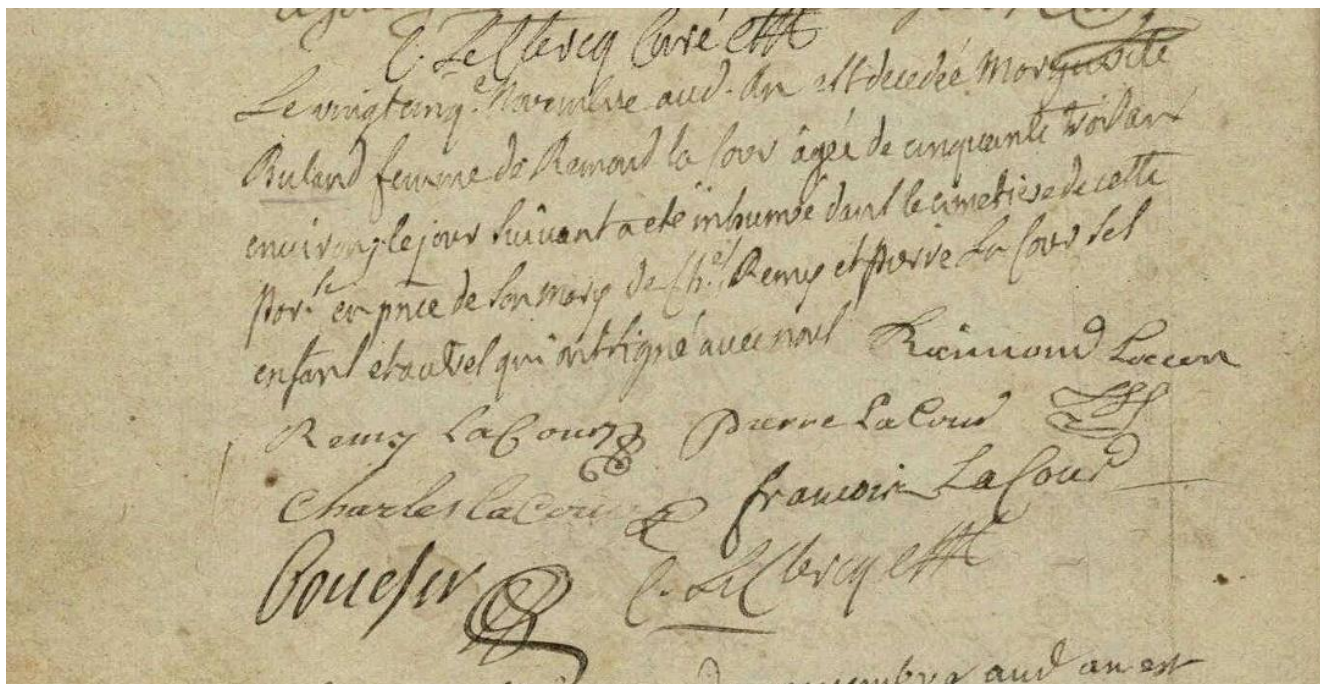 C. Le Clercq Curé
Le vingt cinq.e Novembre aud. An est decedée Marguerite
Ruland femme de Remond la Cour âgée de cinquante trois ans
environ, le jour suivant a eté inhumée dans le cimetiere de cette
par.se en pnce de son mary de Ch.es Remy et pierre La Cour ses
enfans et autres qui ont signé avec nous Raimond Lacour
Remy LaCour pierre LaCour
Charles laCour francois LaCour
C. Le Clercq
novembre aud an est